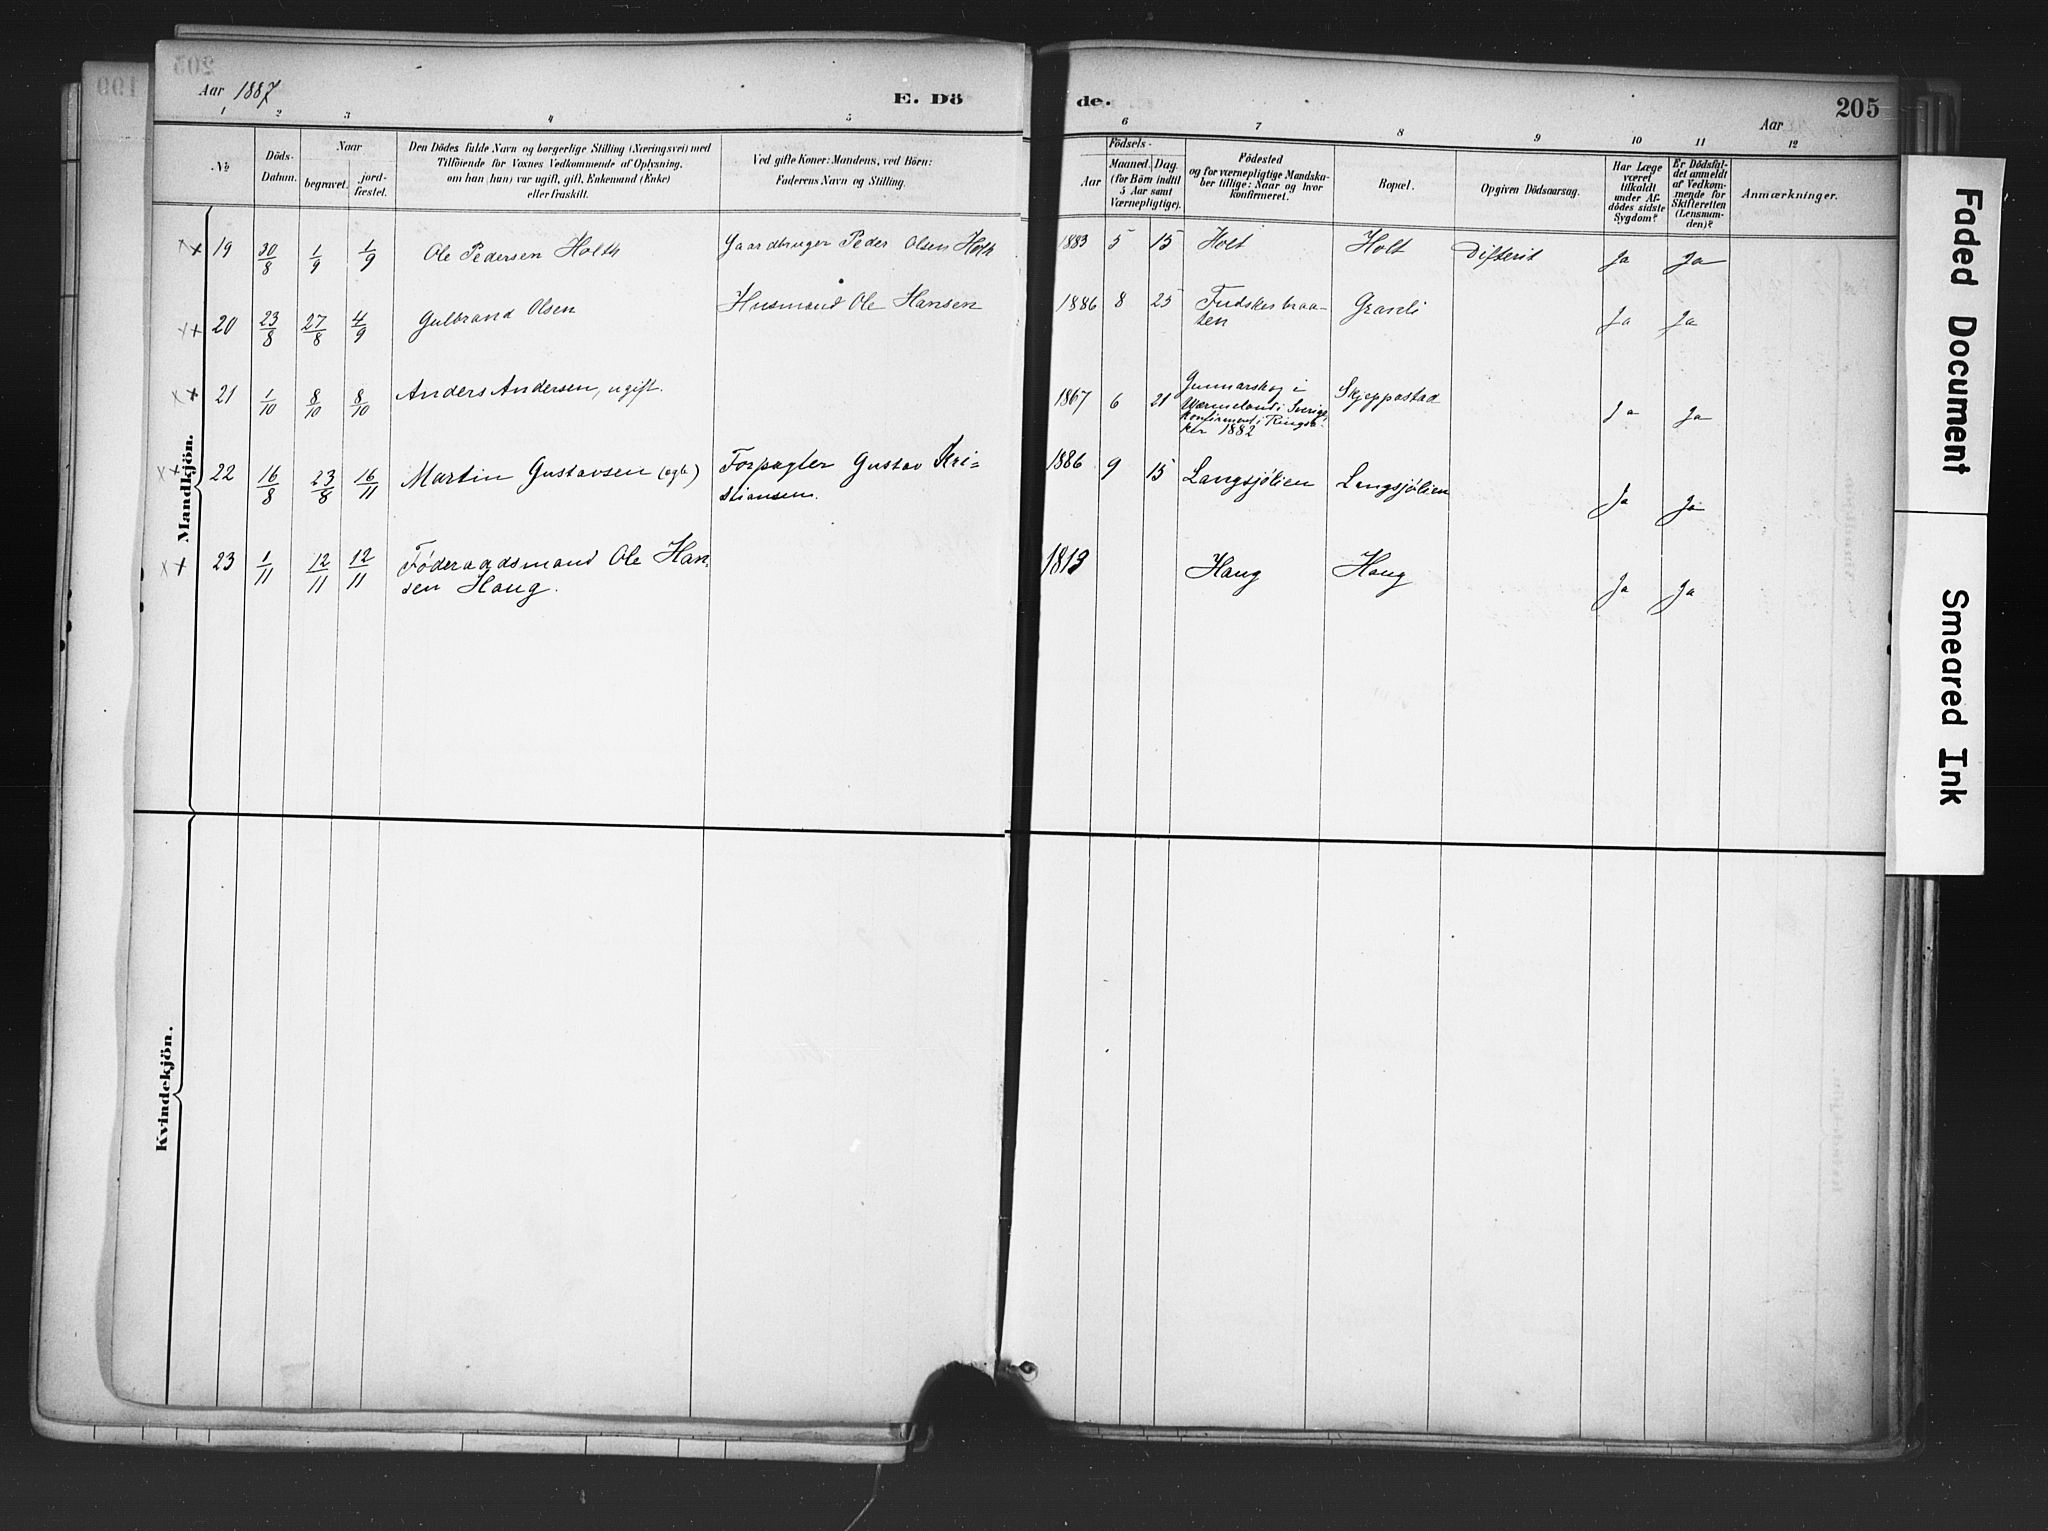 205
Aar 1887
E. Dö
de.
Aar
205
1 2 3 4 5 6 7 8 9 10 11 12
No
Döds-
Datum.
Naar
begravet.
jord-
fæstet.
Den Dödes fulde Navn og borgerlige Stilling (Næringsvei) med
Tilföiende for Voxnes Vedkommende af Oplysning,
om han (hun) var ugift, gift, Enkemand (Enke)
eller fraskilt.
Ved gifte Koner: Mandens, ved Börn:
Faderens Navn og Stilling.
Födsels-
Aar
Maaned. Dag.
(for Börn indtil
5 Aar samt
Værnepligtige).
Födested
og for værnepligtige Mandska-
ber tillige: Naar og hvor
konfirmeret.
Bopæl.
Opgiven Dödsaarsag.
Har Læge
været
tilkaldt
under Af-
dödes sidste
Sygdom?
Er Dödsfal-
det anmeldt
af Vedkom-
mende for
Skifteretten
(Lensman-
den)?
Anmærkninger.
Mandkjön.
×+ 19 30/8 1/9 1/9 Ole Pedersen Holth Gaardbruger Peder Olsen Holth 1883 5 15 Holt Holt Difterit Ja Ja
×+ 20 23/8 27/8 4/9 Gulbrand Olsen Husmand Ole Hansen 1886 8 25 Fudskerbraa-
ten Graseli Ja Ja
×+ 21 1/10 8/10 8/10 Anders Andersen, ugift. 1867 6 21 Gunnarskog i
Værmeland i Sverige,
konfirmert i Ringsa-
ker 1882 Skjeppastad Ja Ja
×+ 22 16/8 23/8 16/11 Martin Gustavsen (ægte) Forpagter Gustav Kri-
stiansen. 1886 9 15 Langsjölien Langsjölien Ja Ja
×+ 23 1/11 12/11 12/11 Föderaadsmand Ole Han-
sen Haug. 1813 Haug Haug Ja Ja
Kvindekjön.
Faded Document
Smeared Ink